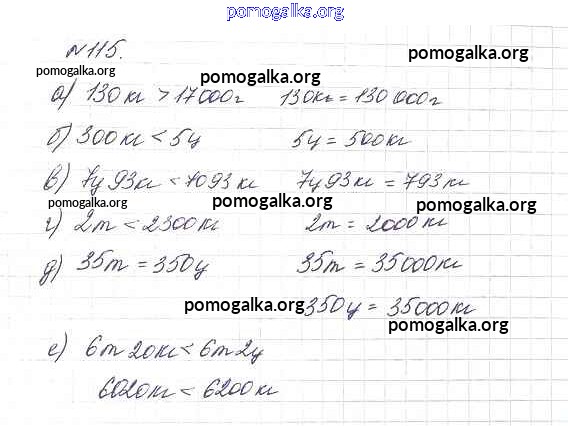 pomogalka.org
№115.
pomogalka.org
pomogalka.org
pomogalka.org
а) 130кг > 17000г 130кг = 130 000г
б) 300кг < 5ц 5ц = 500кг
в) 7ц 93кг < 7093 кг 7ц 93кг = 793 кг
pomogalka.org pomogalka.org pomogalka.org
г) 2т < 2300кг 2т = 2000кг
д) 35т = 350ц 35т = 35000кг
pomogalka.org 350ц = 35000кг
pomogalka.org
е) 6т 20кг < 6т 2ц
6020кг < 6200кг